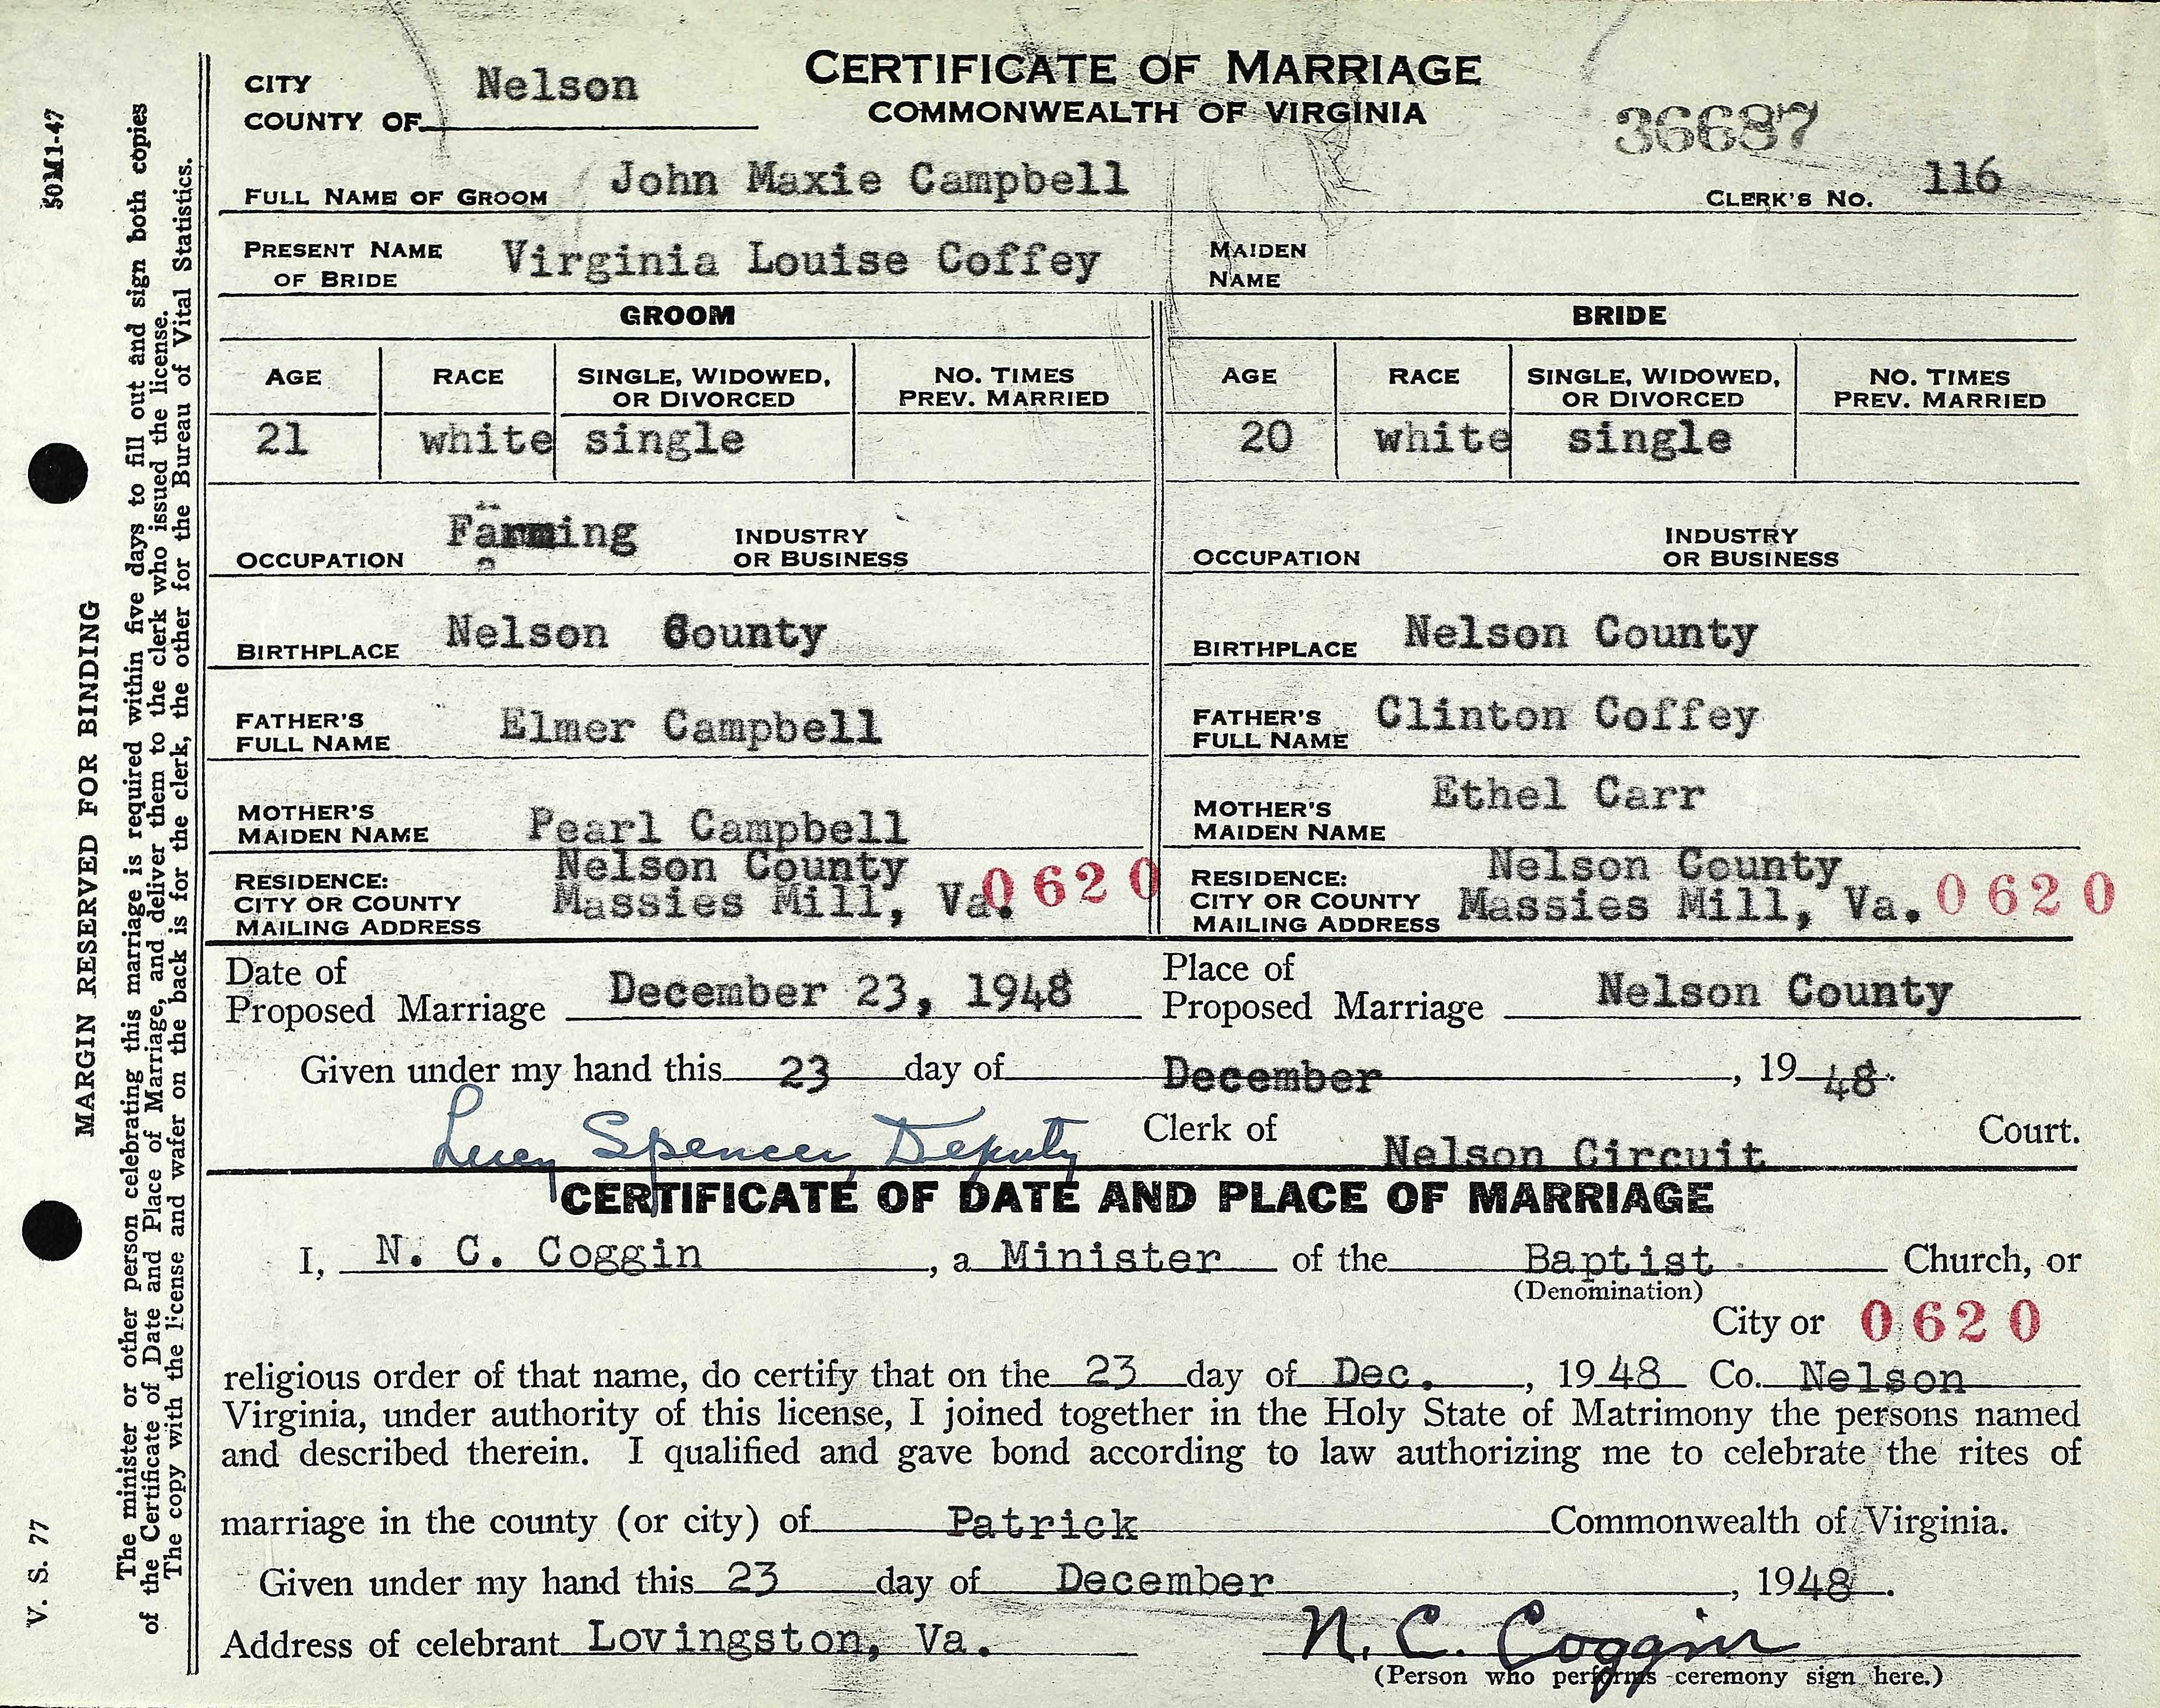 50M1-47
MARGIN RESERVED FOR BINDING
V. S. 77
The minister or other person celebrating this marriage is required within five days to fill out and sign both copies
of the Certificate of Date and Place of Marriage, and deliver them to the clerk who issued the license.
The copy with the license and wafer on the back is for the clerk, the other for the Bureau of Vital Statistics.
CERTIFICATE OF MARRIAGE
COMMONWEALTH OF VIRGINIA
CITY
COUNTY OF Nelson
36687
FULL NAME OF GROOM John Maxie Campbell CLERK'S NO. 116
PRESENT NAME OF BRIDE Virginia Louise Coffey MAIDEN NAME
GROOM BRIDE
AGE RACE SINGLE, WIDOWED, OR DIVORCED NO. TIMES PREV. MARRIED AGE RACE SINGLE, WIDOWED, OR DIVORCED NO. TIMES PREV. MARRIED
21 white single 20 white single
OCCUPATION Farming INDUSTRY OR BUSINESS OCCUPATION INDUSTRY OR BUSINESS
BIRTHPLACE Nelson County BIRTHPLACE Nelson County
FATHER'S FULL NAME Elmer Campbell FATHER'S FULL NAME Clinton Coffey
MOTHER'S MAIDEN NAME Pearl Campbell MOTHER'S MAIDEN NAME Ethel Carr
RESIDENCE: CITY OR COUNTY Nelson County RESIDENCE: CITY OR COUNTY Nelson County
MAILING ADDRESS Massies Mill, Va. 0620 MAILING ADDRESS Massies Mill, Va. 0620
Date of Proposed Marriage December 23, 1948 Place of Proposed Marriage Nelson County
Given under my hand this 23 day of December, 1948.
Lucy Spencer, Deputy Clerk of Nelson Circuit Court.
CERTIFICATE OF DATE AND PLACE OF MARRIAGE
I, N. C. Coggin, a Minister of the Baptist Church, or
(Denomination)
City or 0620
religious order of that name, do certify that on the 23 day of Dec., 1948 Co. Nelson
Virginia, under authority of this license, I joined together in the Holy State of Matrimony the persons named
and described therein. I qualified and gave bond according to law authorizing me to celebrate the rites of
marriage in the county (or city) of Patrick Commonwealth of Virginia.
Given under my hand this 23 day of December, 1948.
Address of celebrant Lovingston, Va. N. C. Coggin
(Person who performs ceremony sign here.)